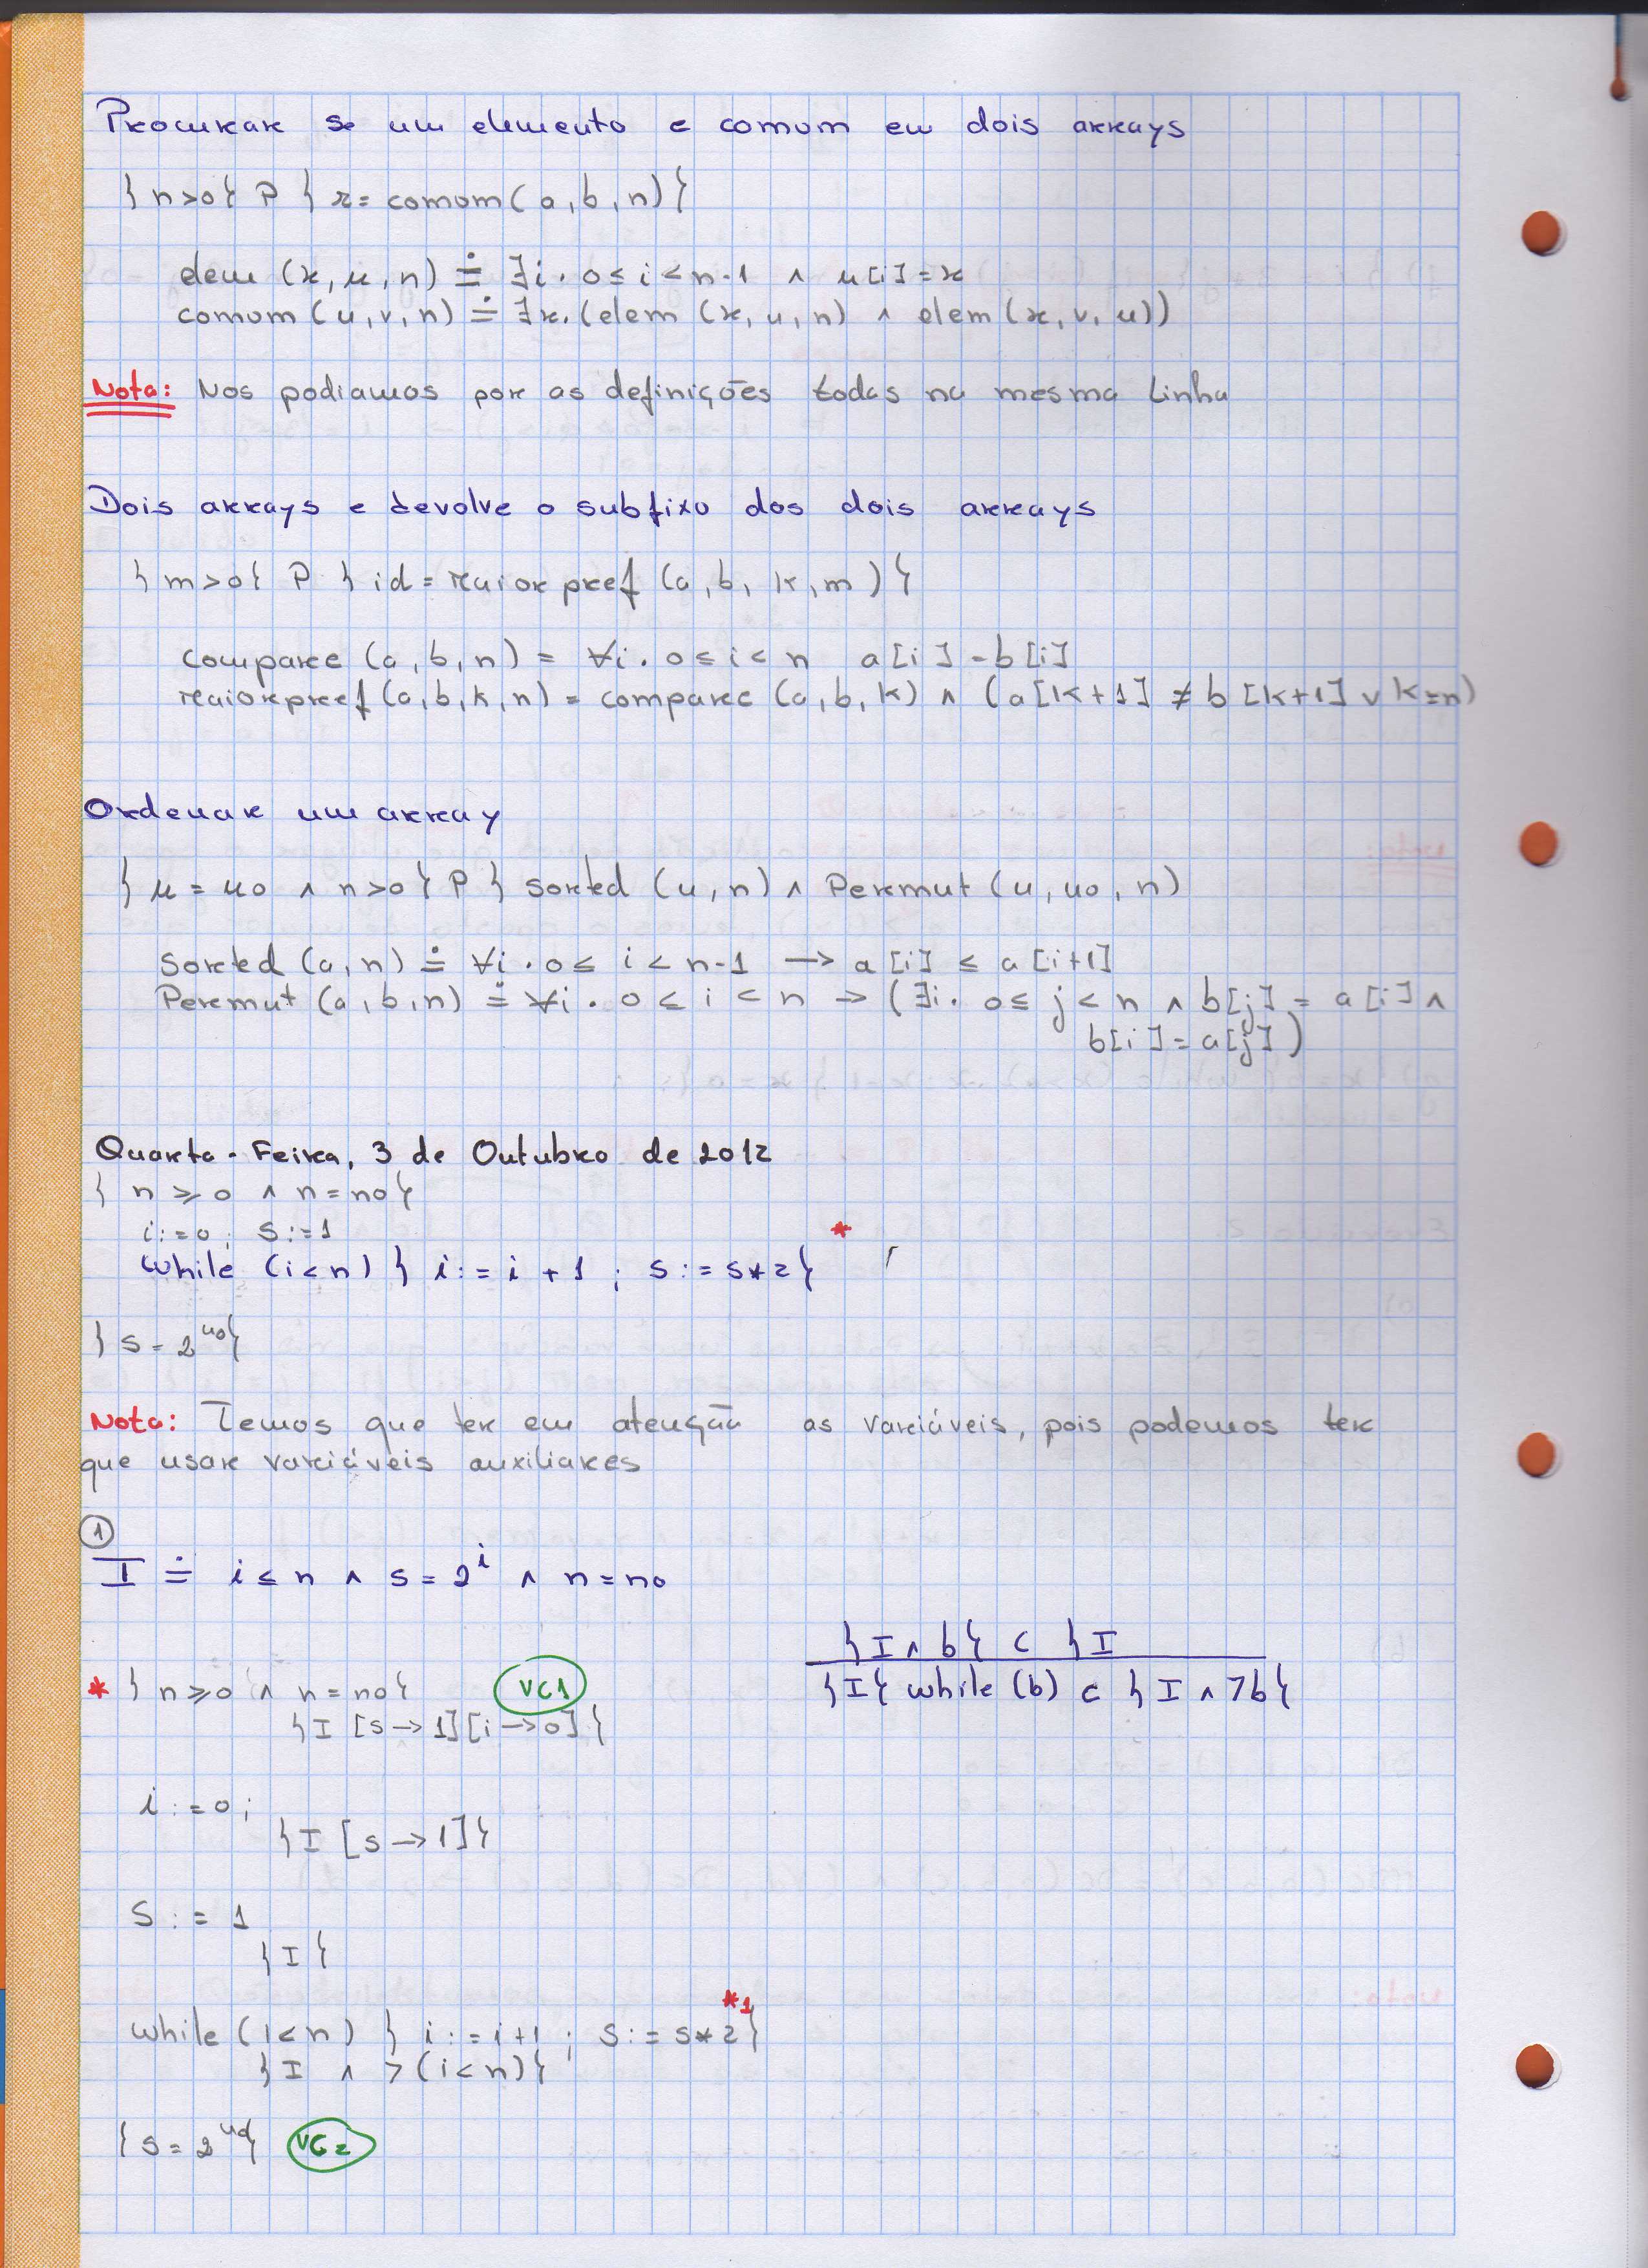 Procurar se um elemento e comum em dois arrays
{ n>0 } P { r= comum(a,b,n) }
elem (x,u,n) ≐ ∃i . 0≤i<n-1 ∧ u[i]=x
comum (u,v,n) ≐ ∃x.(elem (x,u,n) ∧ elem(x,v,u))
Nota: Nos podiamos por as definições todas na mesma linha
Dois arrays e devolve o subfixo dos dois arrays
{ m>0 } P { id = maiorpref (a,b, k,m) }
compare (a,b,n) = ∀i. 0≤i<n a[i]=b[i]
maiorpref (a,b,k,n) = compare (a,b,k) ∧ (a[k+1] ≠ b[k+1] ∨ k=n)
Ordenar um array
{ u = u0 ∧ n>0 } P { sorted (u,n) ∧ Permut (u,u0,n)
Sorted (a,n) ≐ ∀i . 0≤ i < n-1 → a[i] ≤ a[i+1]
Permut (a,b,n) ≐ ∀i . 0 ≤ i < n → (∃i. 0≤ j < n ∧ b[j] = a[i] ∧
b[i]=a[j])
Quarta-Feira, 3 de Outubro de 2012
{ n ≥ 0 ∧ n = n0 }
i:=0; s:=1
while (i<n) { i:= i + 1 ; s:= s*2 } *
{ s = 2^n0 }
Nota: Temos que ter em atenção as variáveis, pois podemos ter
que usar variáveis auxiliares
①
I ≐ i ≤ n ∧ s = 2^i ∧ n = n0
{I ∧ b} C {I
{I} while (b) C { I ∧ ¬b}
* { n≥0 ∧ n = n0 } VC1
{ I [s→1][i→0] }
i:=0;
{ I [s→1] }
S := 1
{ I }
while (i<n) { i:=i+1 ; s:= s*2 } *1
{ I ∧ ¬(i<n) }
{ s = 2^n0 } VC2